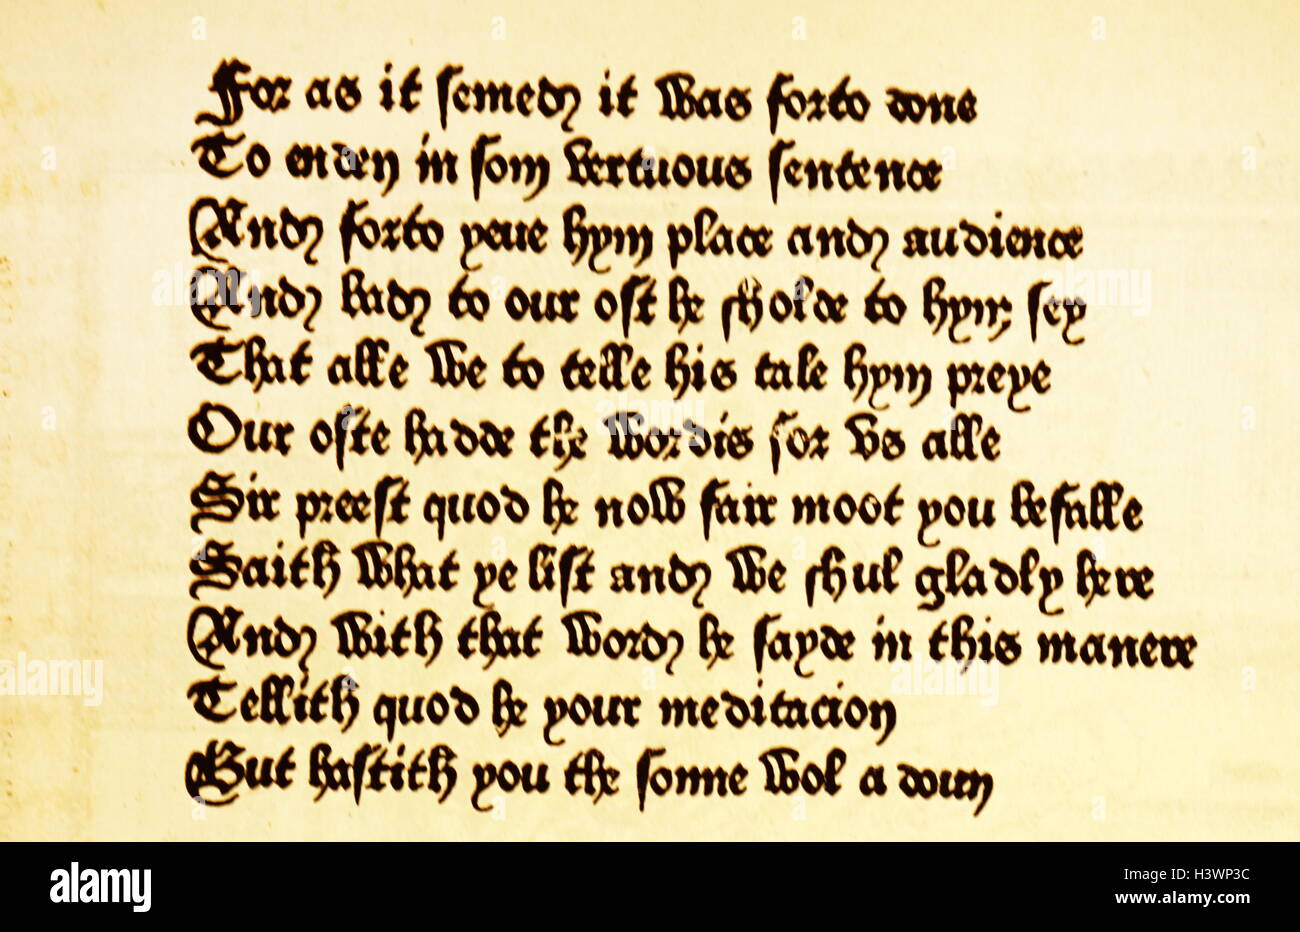 For as it semed it was forto done
To enden in som vertuous sentence
And forto yeue hym place and audience
And bad to our ost he sholde to hym sey
That alle we to telle his tale hym preye
Our oste hadde the wordis for vs alle
Sir preest quod he now fair moot you befalle
Saith what ye list and we shul gladly here
And with that word he sayde in this manere
Tellith quod he your meditacion
But hastith you the sonne wol a doun
alamy
alamy
Image ID: H3WP3C
www.alamy.com